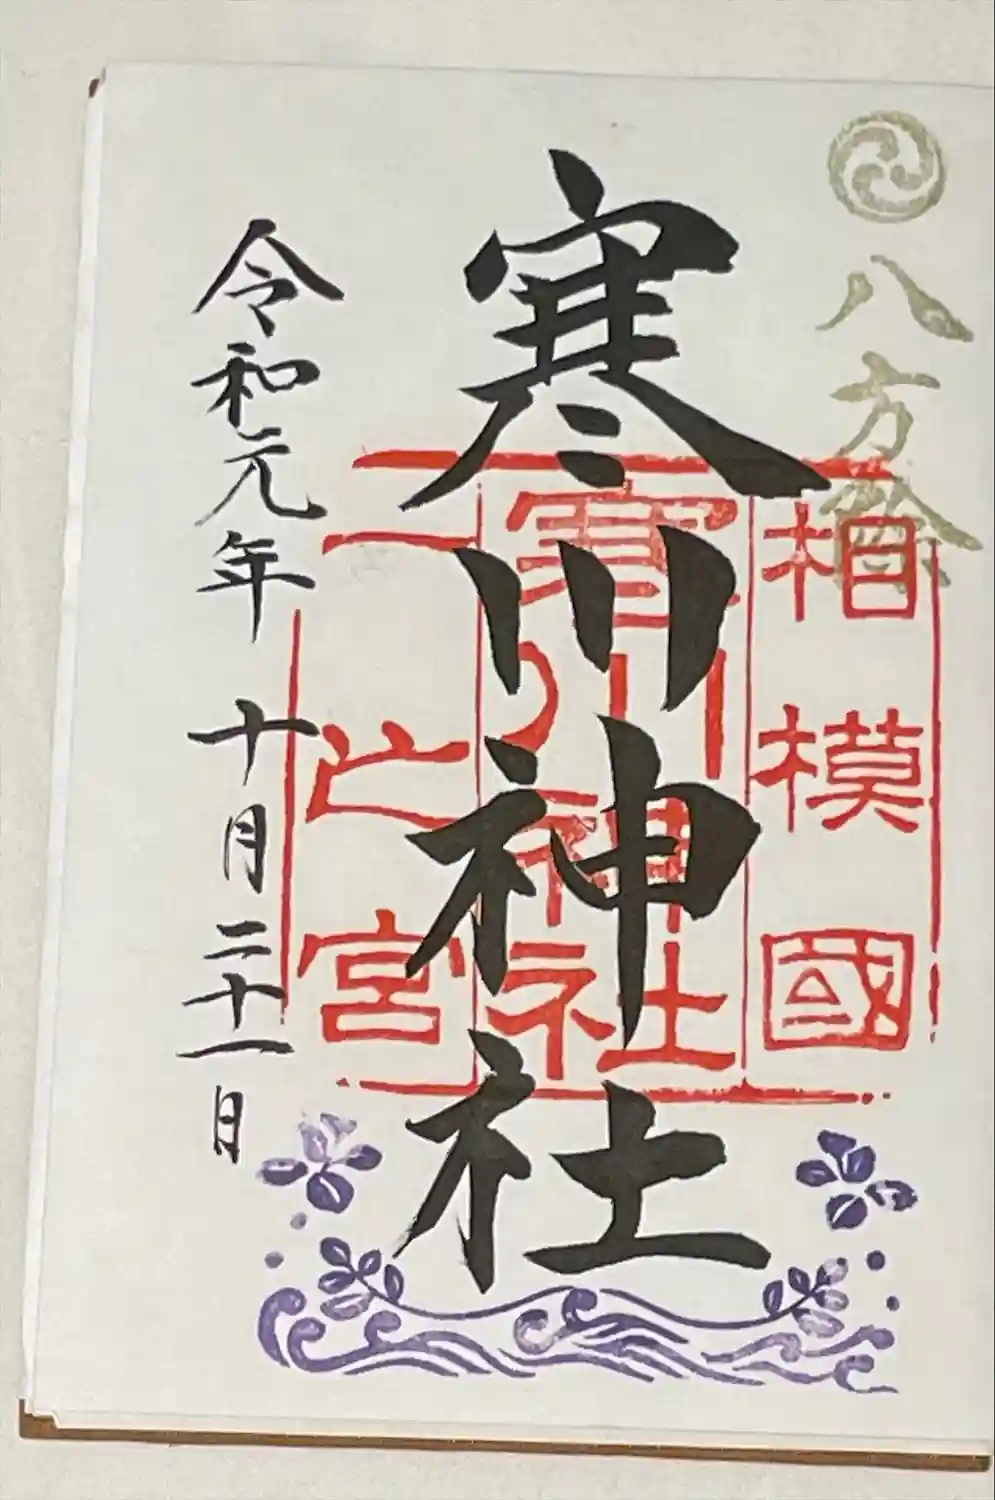 八方除
相模國
寒川神社
一之宮
寒川神社
令和元年十月二十一日